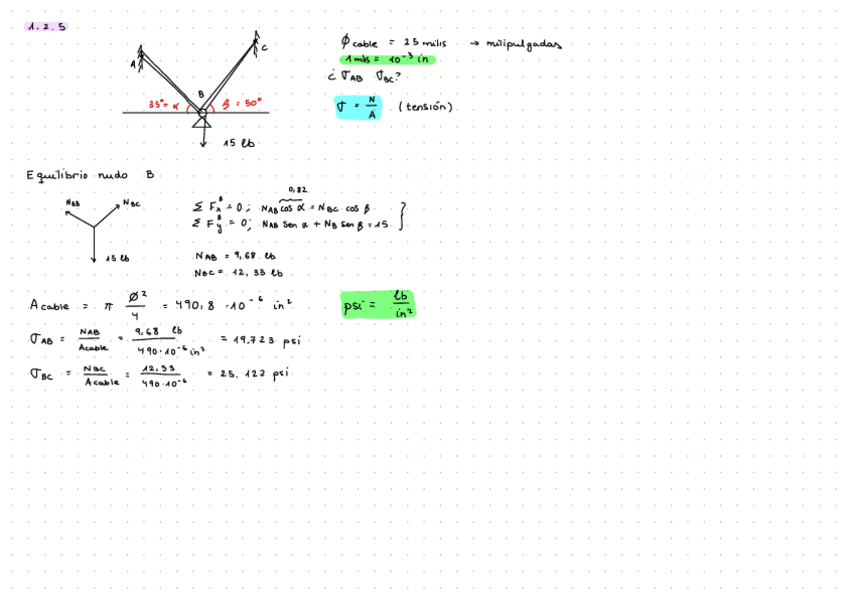 1.2.5
A
C
B
35° = α
β = 50°
15 lb
Ø cable = 25 milis → milipulgadas
1 mils = 10⁻³ in
¿ σAB σBC?
σ = N/A (tensión)
Equilibrio nudo B
NAB
NBC
15 lb
0,82
Σ FxB = 0; NAB cos α = NBC cos β
Σ FyB = 0; NAB sen α + NB sen β = 15
NAB = 9,68 lb
NBC = 12,33 lb
A cable = π Ø²/4 = 490,8 · 10⁻⁶ in²
psi = lb/in²
σAB = NAB/Acable = 9,68 lb/490·10⁻⁶ in² = 19,723 psi
σBC = NBC/Acable = 12,33/490·10⁻⁶ = 25.122 psi